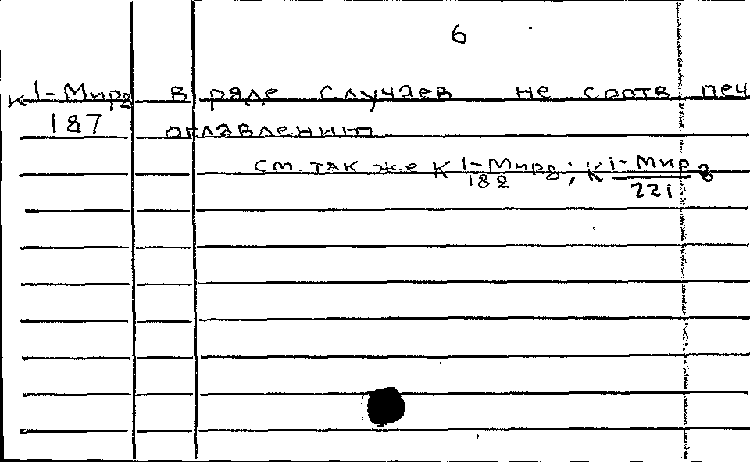 6
К 1-Мирв в ряде случаев не соотв печ
187 оглавлению
см. так же К 1-Мирв; К 1-Мир в
182 221